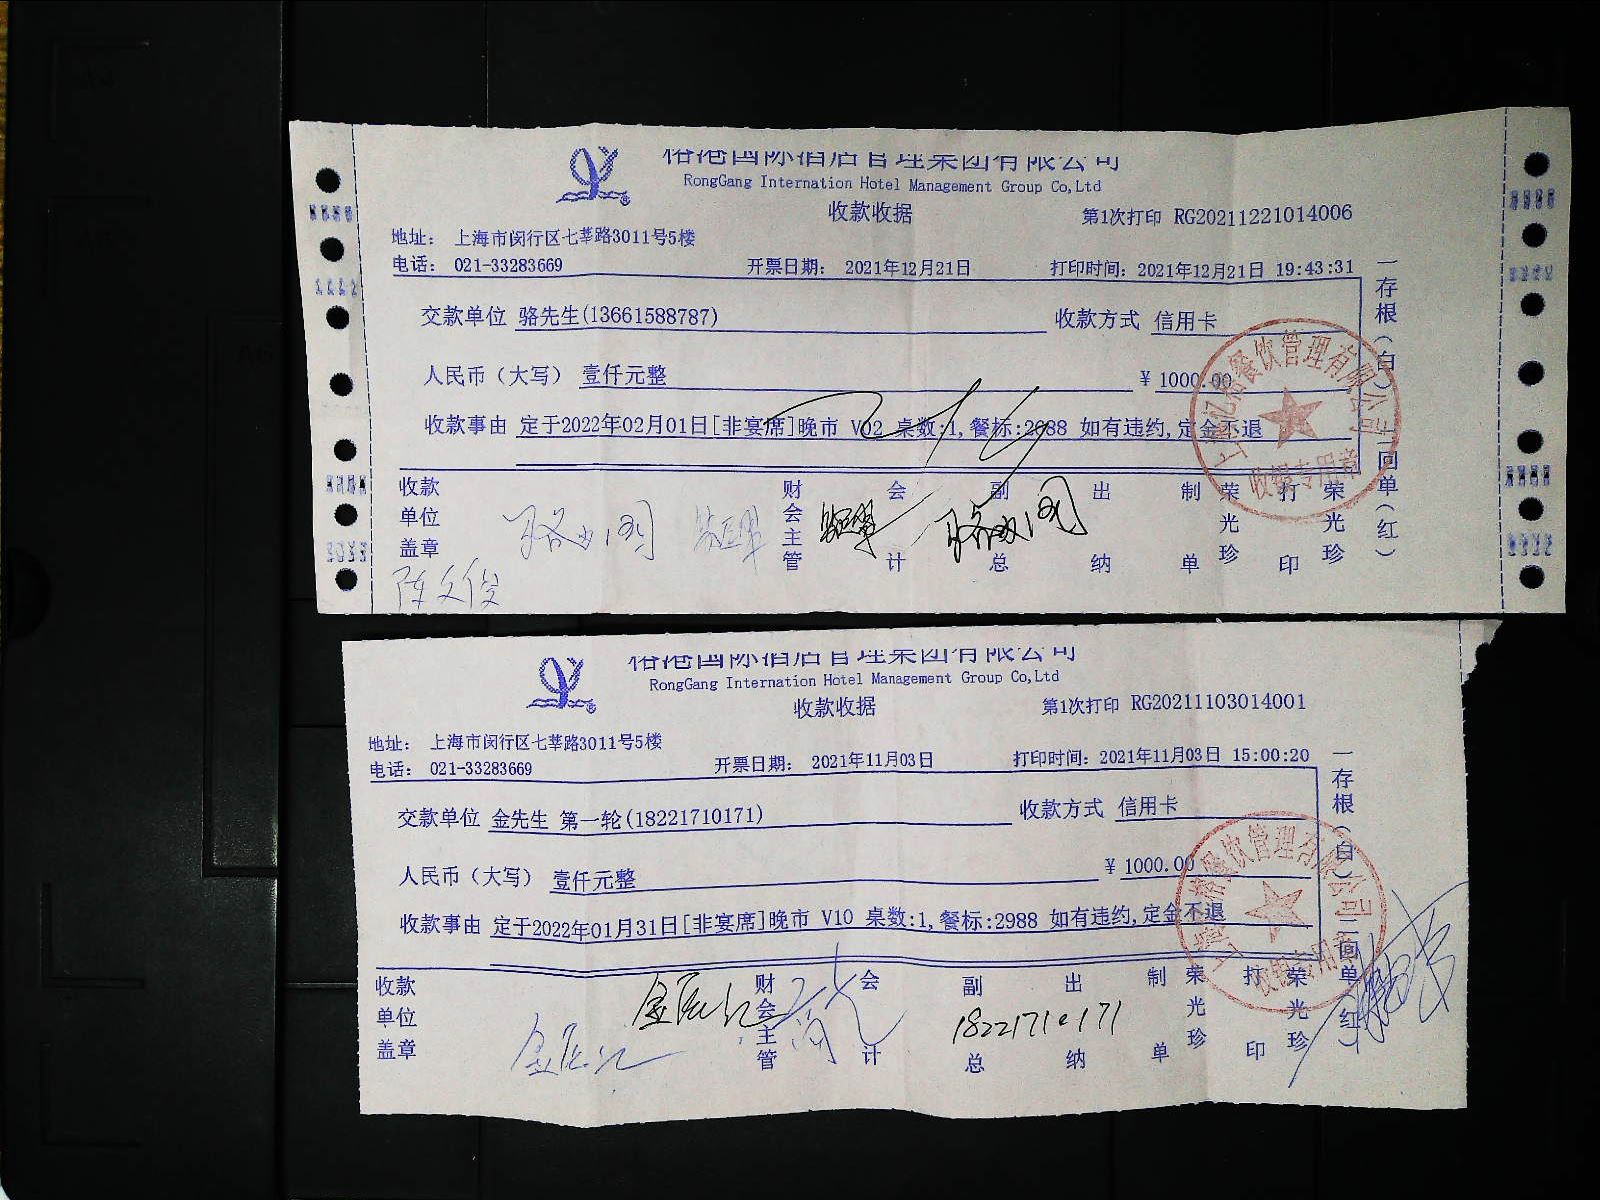 裕港国际酒店管理集团有限公司
RongGang Internation Hotel Management Group Co,Ltd
收款收据
第1次打印 RG20211221014006
地址: 上海市闵行区七莘路3011号5楼
电话: 021-33283669 开票日期: 2021年12月21日 打印时间: 2021年12月21日 19:43:31
交款单位 骆先生(13661588787) 收款方式 信用卡
人民币(大写) 壹仟元整 ¥ 1000.00
收款事由 定于2022年02月01日[非宴席]晚市 V02 桌数:1,餐标:2688 如有违约,定金不退
收款单位盖章 财会主管 会计 副总 出纳 制单 荣光珍 打印 荣光珍
一存根(白)二回单(红)
餐饮管理有限公司
收银专用章
陈文俊
裕港国际酒店管理集团有限公司
RongGang Internation Hotel Management Group Co,Ltd
收款收据
第1次打印 RG20211103014001
地址: 上海市闵行区七莘路3011号5楼
电话: 021-33283669 开票日期: 2021年11月03日 打印时间: 2021年11月03日 15:00:20
交款单位 金先生 第一轮(18221710171) 收款方式 信用卡
人民币(大写) 壹仟元整 ¥ 1000.00
收款事由 定于2022年01月31日[非宴席]晚市 V10 桌数:1,餐标:2988 如有违约,定金不退
收款单位盖章 财会主管 会计 副总 出纳 制单 荣光珍 打印 荣光珍
一存根(白)二回单(红)
餐饮管理有限公司
收银专用章
18221710171